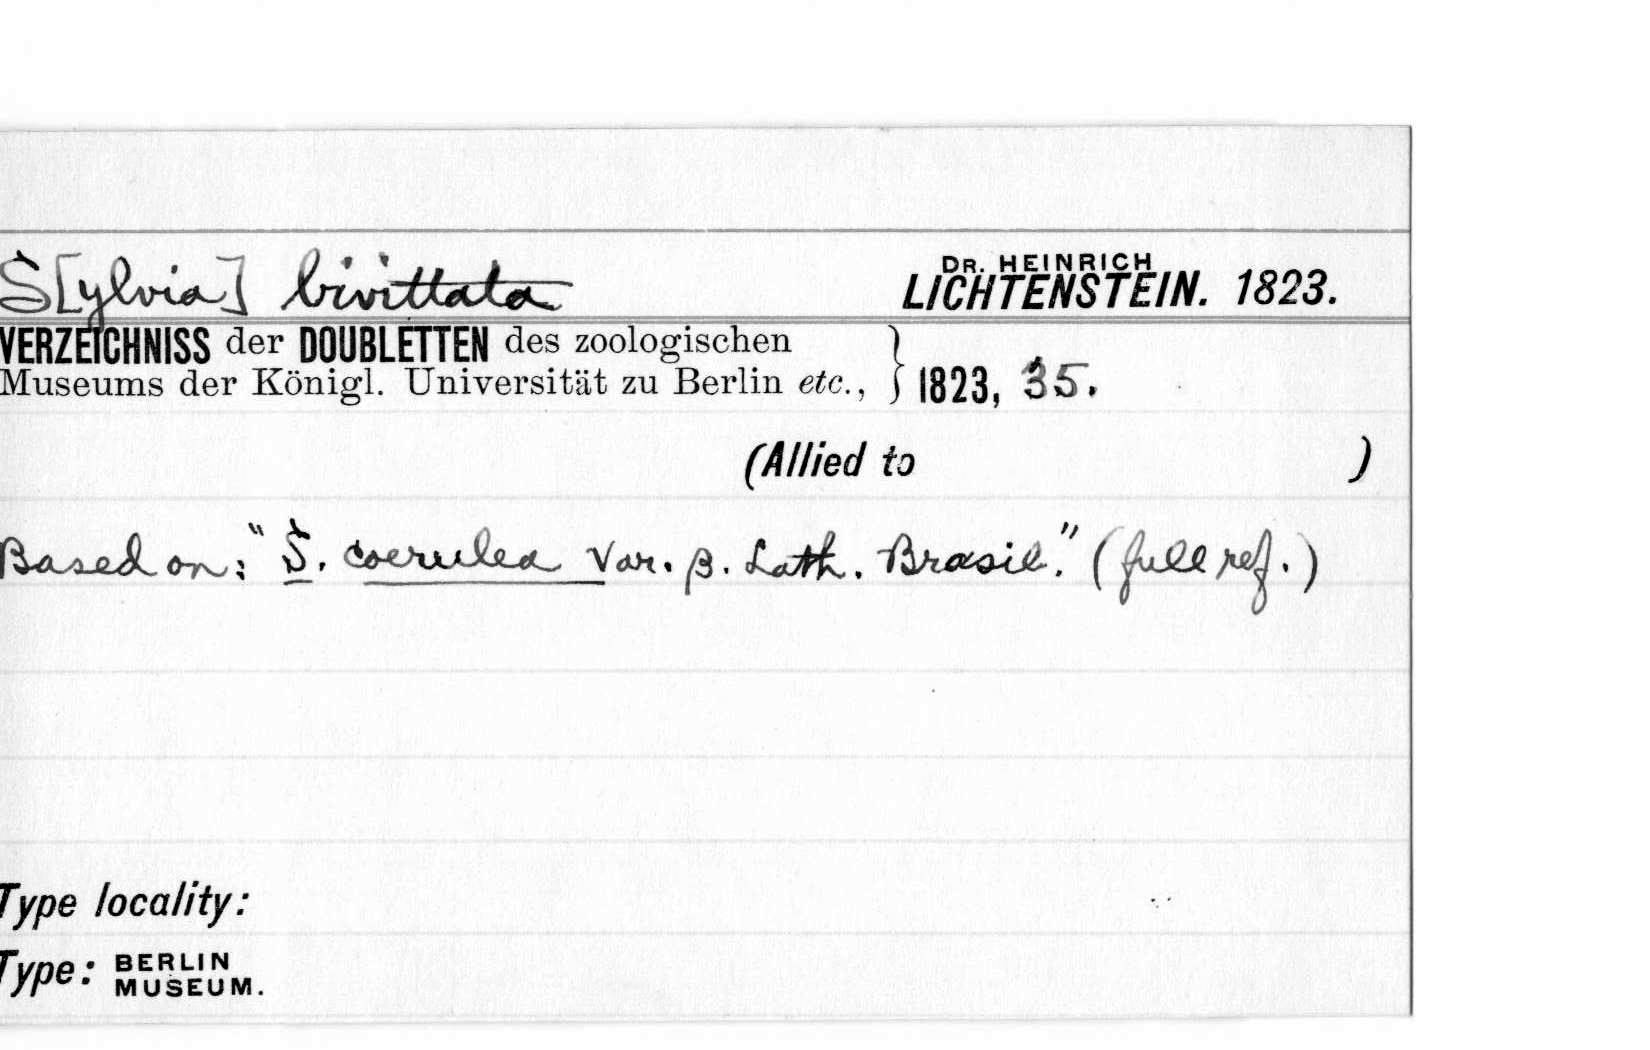 S[ylvia] bivittata
DR. HEINRICH
LICHTENSTEIN. 1823.
VERZEICHNISS der DOUBLETTEN des zoologischen
Museums der Königl. Universität zu Berlin etc., } 1823, 35.
(Allied to )
Based on: "S. coerulea Var. β. Lath. Brasil." (full ref.)
Type locality:
Type: BERLIN
MUSEUM.